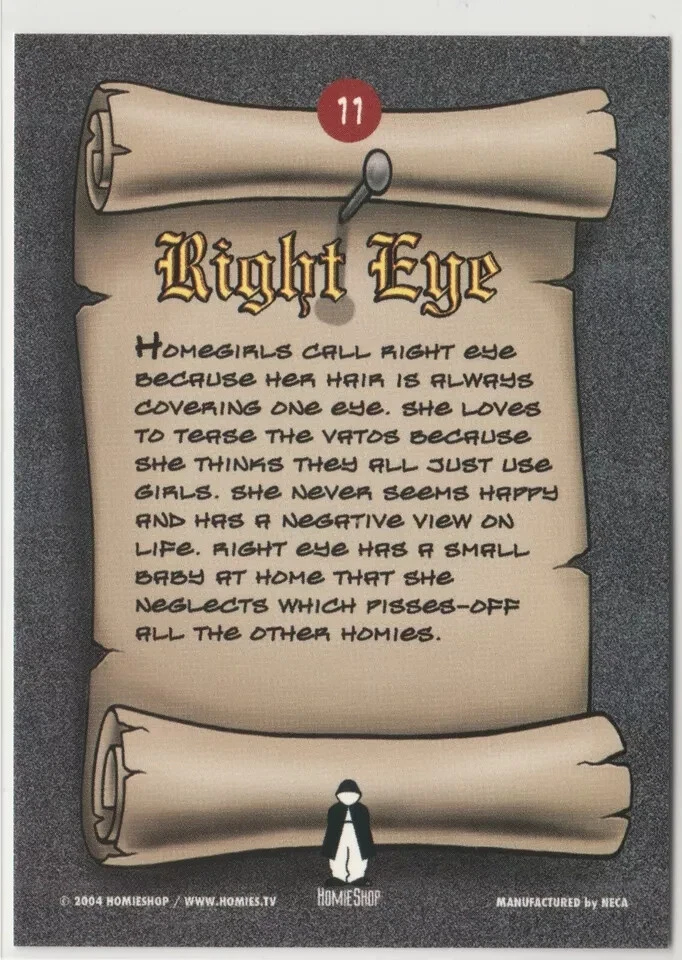 11
Right Eye
HOMEGIRLS CALL RIGHT EYE
BECAUSE HER HAIR IS ALWAYS
COVERING ONE EYE. SHE LOVES
TO TEASE THE VATOS BECAUSE
SHE THINKS THEY ALL JUST USE
GIRLS. SHE NEVER SEEMS HAPPY
AND HAS A NEGATIVE VIEW ON
LIFE. RIGHT EYE HAS A SMALL
BABY AT HOME THAT SHE
NEGLECTS WHICH PISSES-OFF
ALL THE OTHER HOMIES.
© 2004 HOMIESHOP / WWW.HOMIES.TV
HOMIESHOP
MANUFACTURED by NECA